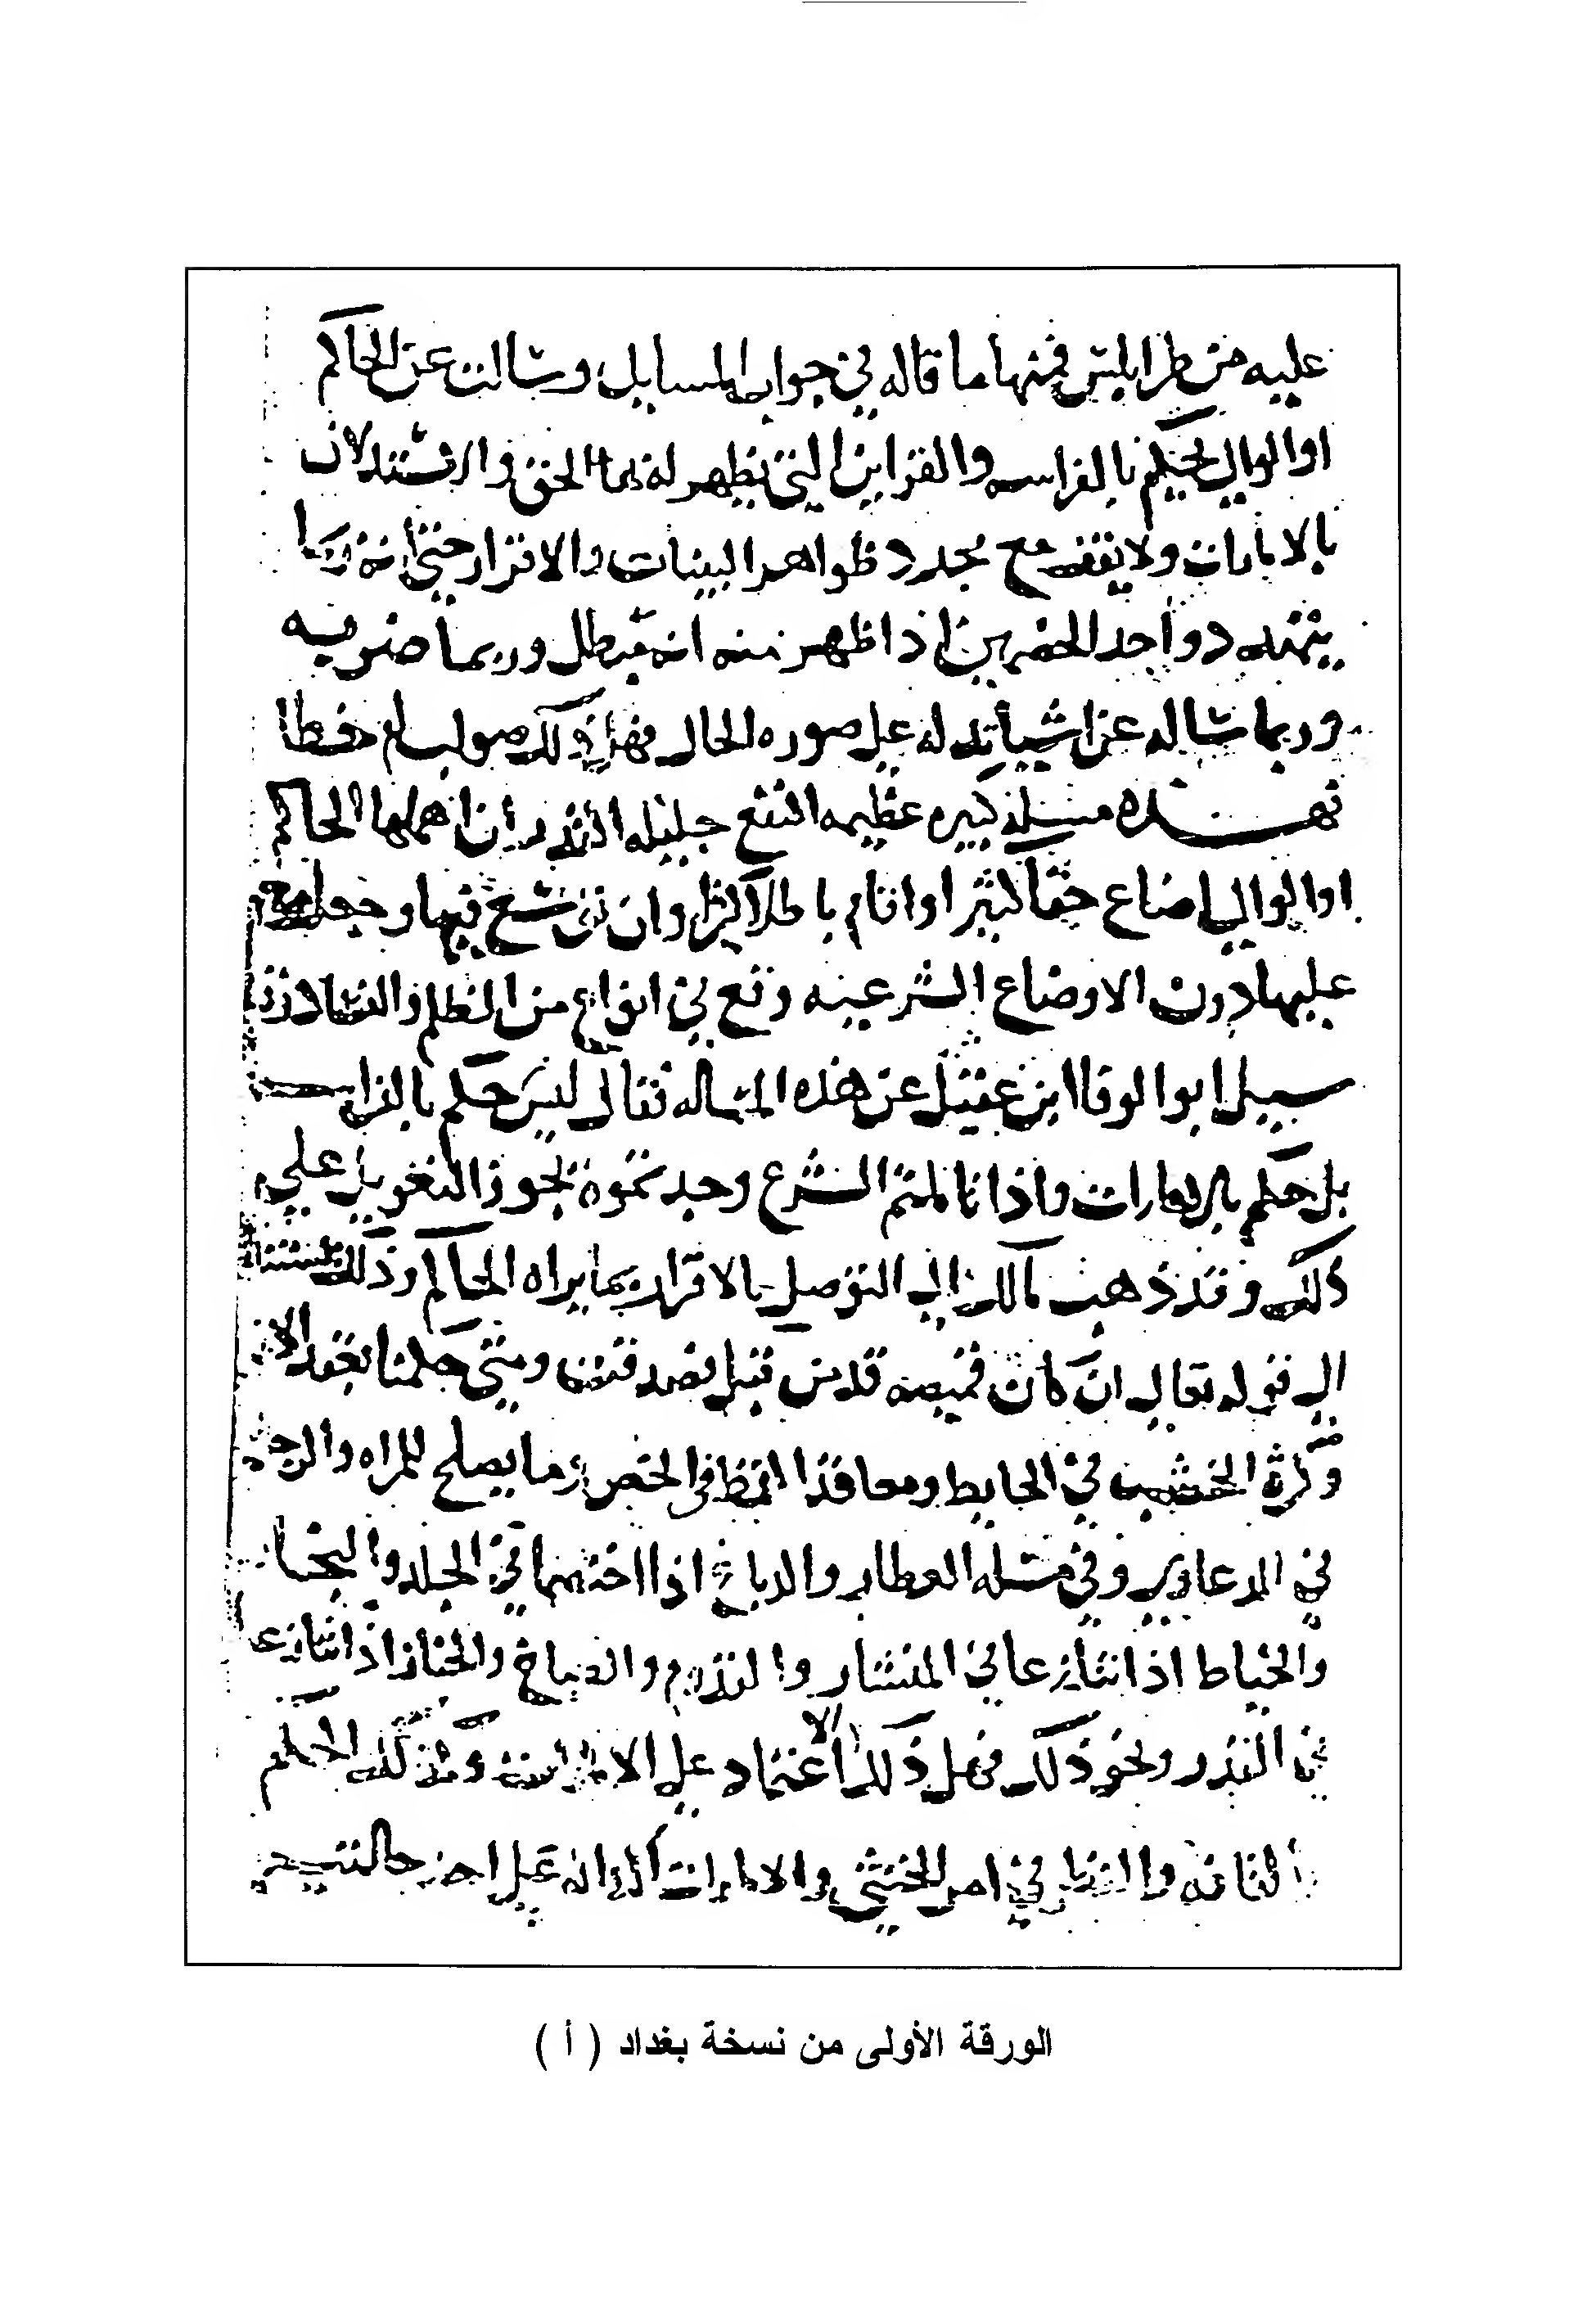 عليه من طرابلس فمنها ما قاله في جواب المسايل وسالت عن الحاكم
او الوالي يحكم بالفراسه والقراين التي يظهر له بها الحق والاستدلال
بالامارات ولا يقف مع مجرد ظواهر البينات والاقرار حتى انه ربما
يتهدد احد الخصمين اذا ظهر منه انه مبطل وربما ضربه
وربما ساله عن اشيا تدله على صوره الحال فهل ذلك صواب ام خطا
فهذه مسئلة كبيره عظيمه النفع جليله القدر ان اهملها الحاكم
او الوالي اضاع حقا كثيرا واقام باطلا كثيرا وان توسع فيها وجعل معوله
عليها دون الاوضاع الشرعيه وقع في انواع من الظلم والفساد وقد
سيل ابو الوفا ابن عقيل عن هذه المساله فقال ليس حكم بالفراسه
بل حكم بالامارات واذا تاملتم الشرع وجدتموه يجوز التعويل على
ذلك وقد ذهب مالك الى التوصل بالاقرار بما يراه الحاكم وذلك يستند
الى قوله تعالى ان كان قميصه قد من قبل فصدقت ومتى حكمنا بعقد الا
وكثرة الخشب في الحايط ومعاقد القمط في الخص وما يصلح للمراه والرجل
في الدعاوي وفي مسئله العطار والدباغ اذا اختصما في الجلد والنجار
والخياط اذا تنازعا في المنشار والقدوم والطباخ والخباز اذا تنازعا
في القدر ونحو ذلك فهل ذلك الا الاعتماد على الامارات وكذلك الحكم
بالقافه والنظر في امر الخنثى والامارات الداله على احد حالتيه
الورقة الأولى من نسخة بغداد ( أ )